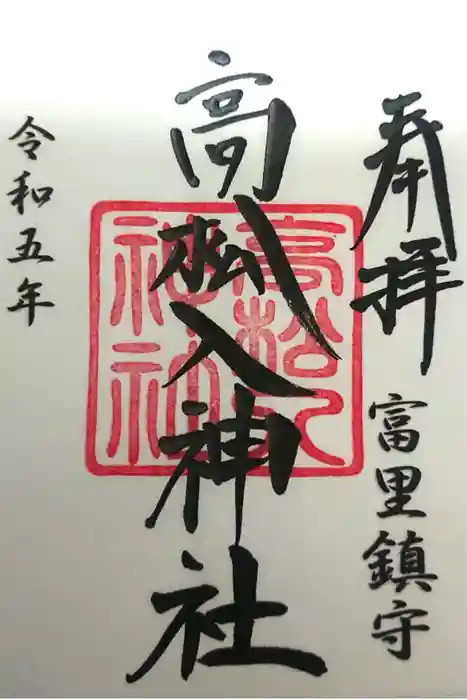 奉拝 富里鎮守
高松入神社
高松入神社
令和五年